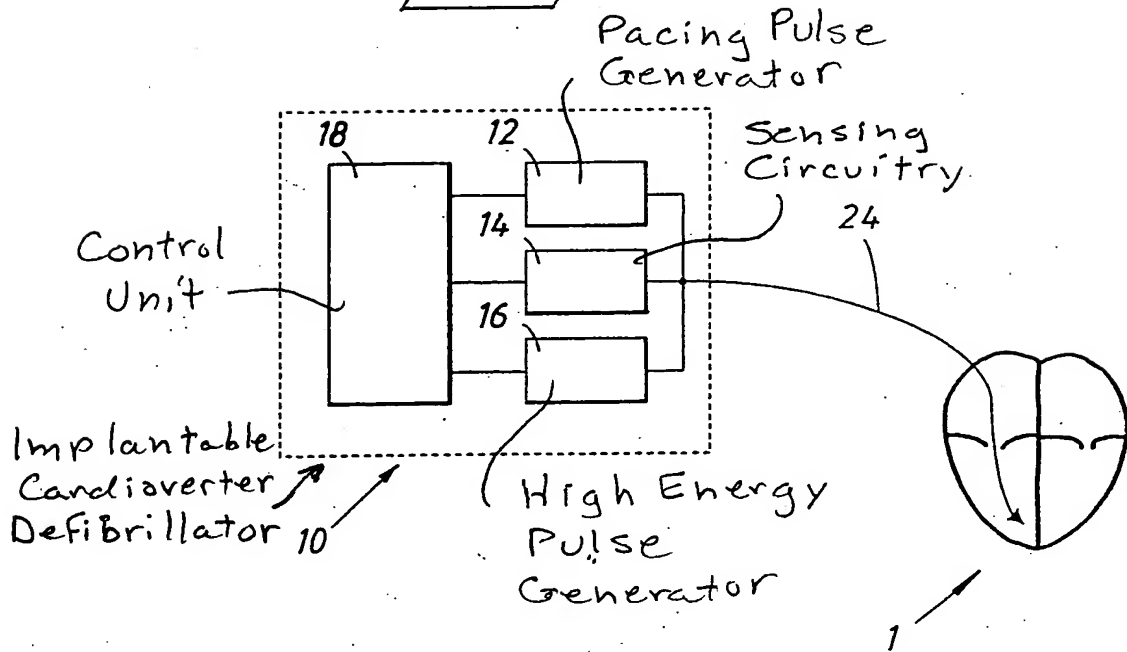 Pacing Pulse
Generator
18
12
Sensing
Circuitry
14
24
Control
Unit
16
Implantable
Cardioverter
Defibrillator 10
High Energy
Pulse
Generator
1